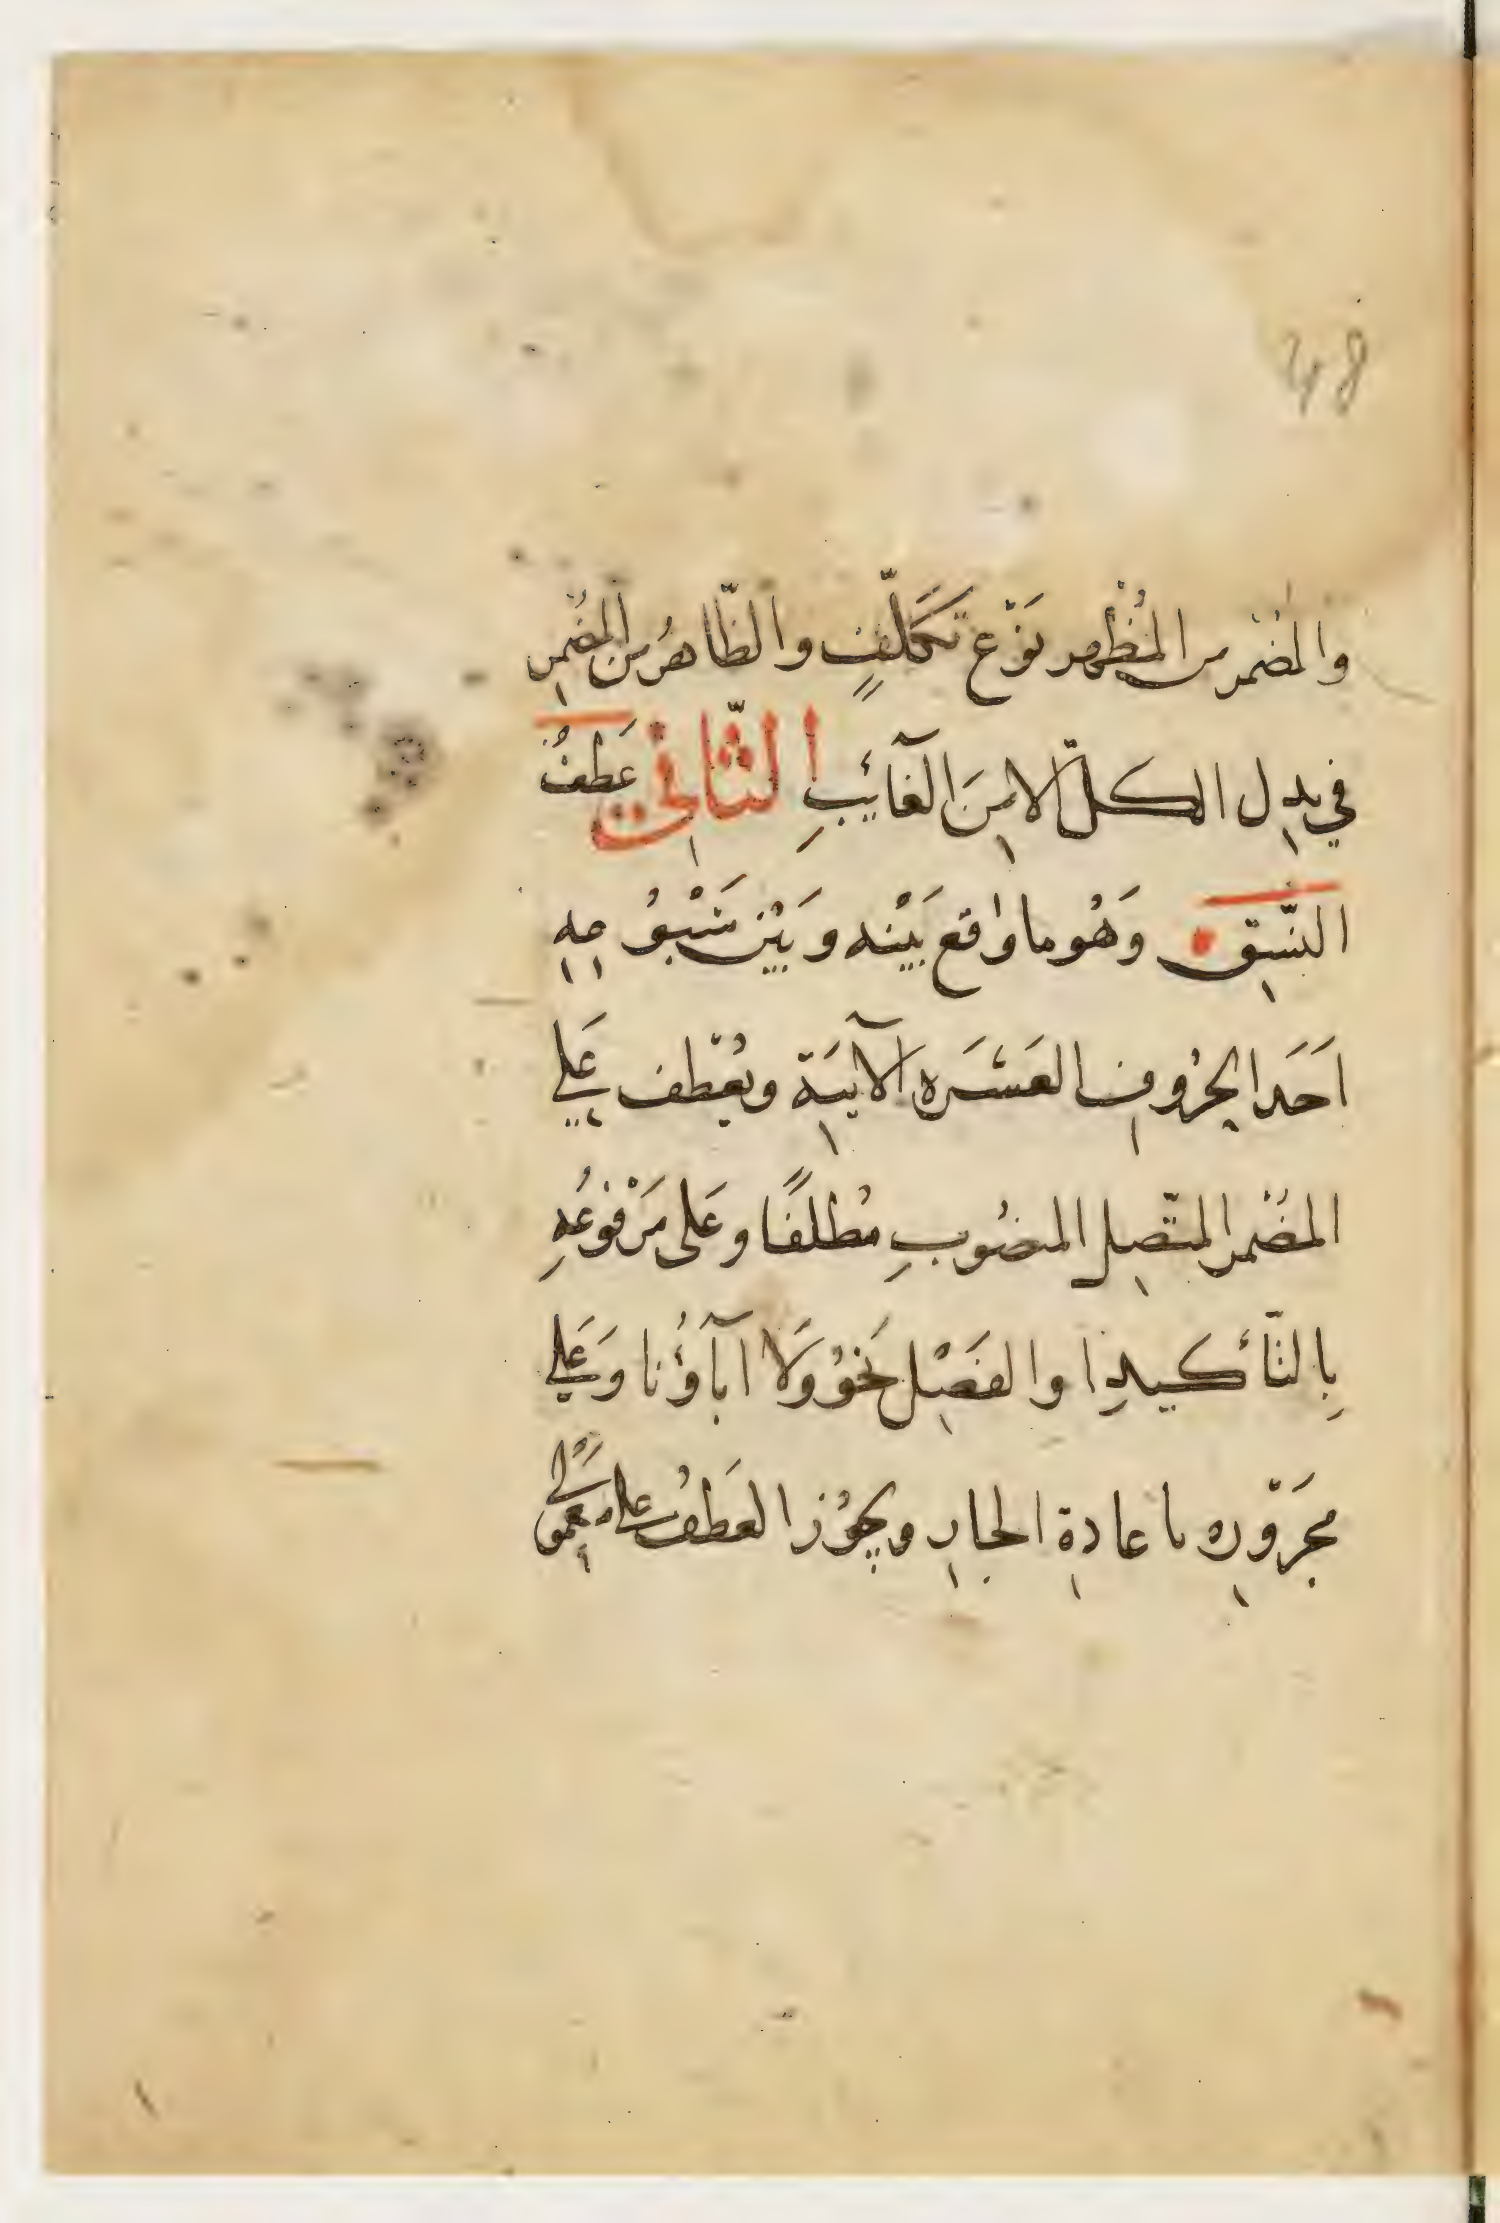 48
والمُضْمر من المُظْهر نَوْع تَكَلّفٍ والظّاهرُ من المُضْمِر
في بدِل الكلّ الا مِنَ الغآئبِ الثّاني عَطفُ
النّسَقِ وَهُو ما واقع بَيْنه وبَيْن مَتْبُوعِهِ
اَحَد الحرُوفِ العَشَره الآتيَةِ ويُعْطف عَلي
المضْمر المتّصِل المنصُوبِ مُطْلقًا وعَلى مَرْفوُعُهِ
بِالتّأكيدِ او الفَصْلِ نَحْوُ وَلَا اآباؤُنا وَعَلي
مجَروُرِه باعادةِ الجارِ ويجُوْز العَطفُ على مَعمولَي